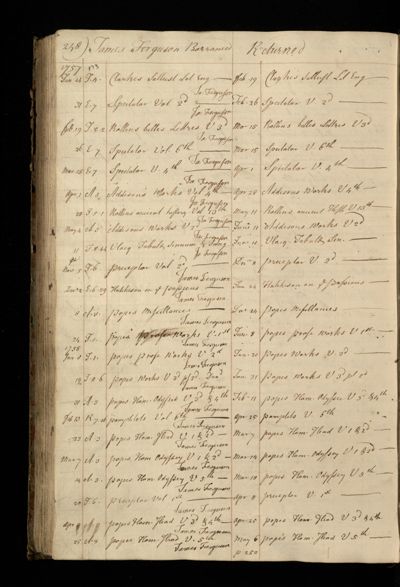 248) James Ferguson Borrowed Returned
1757
Jan 26 Clarkes Sallust Lat Eng — Feb 19 Clarkes Sallust Lat Eng —
Jo Ferguson
31 E.7 Spectator Vol 2d — Feb 26 Spectator V 2d —
Jo Ferguson
Feb 19 Rollins belles Lettres V 3d Mar 15 Rollins belles Lettres V 3d
Jo Ferguson
26 E.7 Spectator Vol 6th — Mar 15 Spectator V 6th —
Jo Ferguson
Mar 15 E.7 Spectator V 4th — Apr 1 Spectator V 4th
Jo Ferguson
Apr 1 A.3 Addisons Works Vol 4th — Apr 28 Addisons Works V 4th —
Jo Ferguson
Rollins ancient history Vol 10th May 11 Rollins ancient Hist. V 10th
May A.3 Addisons Works V 2d Addisons Works V 2d
Jo Ferguson
11 Vlacq Tabula Sinuum Vlacq Tabula Sin.
Jo Ferguson
Nov F.6 preceptor Vol 2d preceptor V
James Ferguson
Hutchison on passions — Jan 24 Hutchison on passions
James Ferguson
popes Miscellanies — popes Miscellanies
James Ferguson
24 popes prose Works V 1st Jan 8 popes prose Works V 1st —
1758 James Ferguson
Jan 8 popes prose Works V 2d Jan 20 popes Works V 2d —
James Ferguson
12 popes Works V 3d Jan 31 popes Works V 3d
James Ferguson
31 A.3 popes Hom. Odyssey V 3 & 4th Feb 11 popes Hom Odyssey V 3 & 4th
James Ferguson
Feb 13 pamphlets Vol 5th Apr 25 pamphlets V. 5th
James Ferguson
22 A.3 popes Hom. Iliad V 1 & 2d — Mar 7 popes Hom. Iliad V 1 & 2d
James Ferguson
Mar 7 A.3 popes Hom Odyssey V 1 & 2d — Mar 14 popes Hom. Odyssey V 1 & 2d
James Ferguson
14 A.3 popes Hom Odyssey V 5th — Mar 20 popes Hom. Odyssey V 5th
James Ferguson
20 F.6 preceptor Vol 1st Apr 8 preceptor V. 1st —
James Ferguson
Apr popes Hom. Iliad V 3d & 4th Apr 25 popes Hom Iliad V 3d & 4th
James Ferguson
25 A.3 popes Hom. Iliad V. 5th — May 6 popes Hom. Iliad V 5th —
James Ferguson p 250